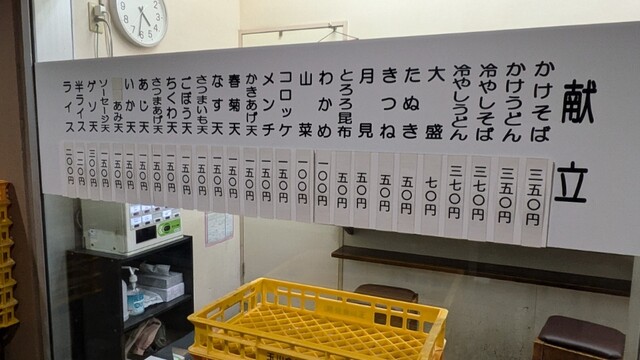 献立
かけそば 三五〇円
かけうどん 三五〇円
冷やしそば 三七〇円
冷やしうどん 三七〇円
大盛 七〇円
たぬき 五〇円
きつね 五〇円
月見 五〇円
とろろ昆布 五〇円
わかめ 一〇〇円
山菜 一〇〇円
コロッケ 一五〇円
メンチ 一五〇円
かきあげ天 一五〇円
春菊天 一五〇円
なす天 一五〇円
さつまいも天 一五〇円
ごぼう天 一五〇円
ちくわ天 一五〇円
さつまあげ天 一五〇円
あじ天 一五〇円
いか天 一五〇円
あみ天 一五〇円
ソーセージ天 一五〇円
ゲソ天 三〇〇円
半ライス 一二〇円
ライス